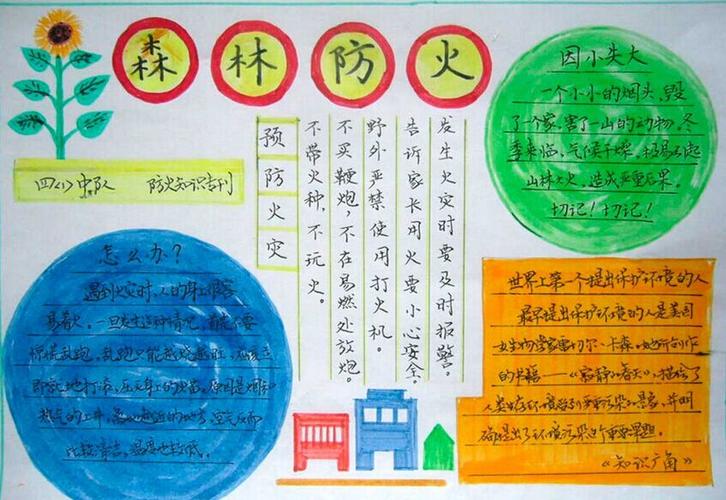 森林防火
四(1)中队 防火知识专刊
预防火灾
不带火种,不玩火。
不买鞭炮,不在易燃处放炮。
野外严禁使用打火机。
告诉家长用火要小心安全。
发生火灾时要及时报警。
因小失大
一个小小的烟头,毁
了一个家,害了一山的动物。冬
季来临,气候干燥,极易引起
山林火火,造成严重后果。
切记!切记!
怎么办?
遇到火灾时,人的身上很容
易着火。一旦发生这种情况,首先不要
惊慌乱跑,乱跑只能越烧越旺,应该立
即就地打滚,压灭身上的火苗。原因是烟和
热气的上升,离地越近的地方,空气反而
比较清洁,温度也较低。
世界上第一个提出保护环境的人
最早提出保护环境的人是美国
女生物学家雷切尔·卡森。她所创作
的书籍——《寂静的春天》,描绘了
人类在环境
确提出了环境污染的重要课题。
《知识广角》